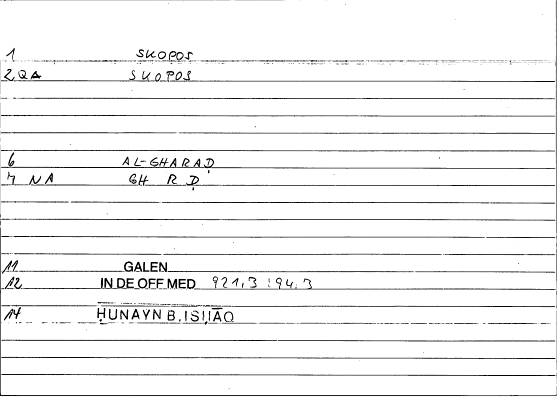 1 SKOPOS
2 QA SKOPOS
6 AL-GHARAḌ
7 NA GH R Ḍ
11 GALEN
12 IN DE OFF MED 921,3 : 94.3
14 ḤUNAYN B. ISḤĀQ